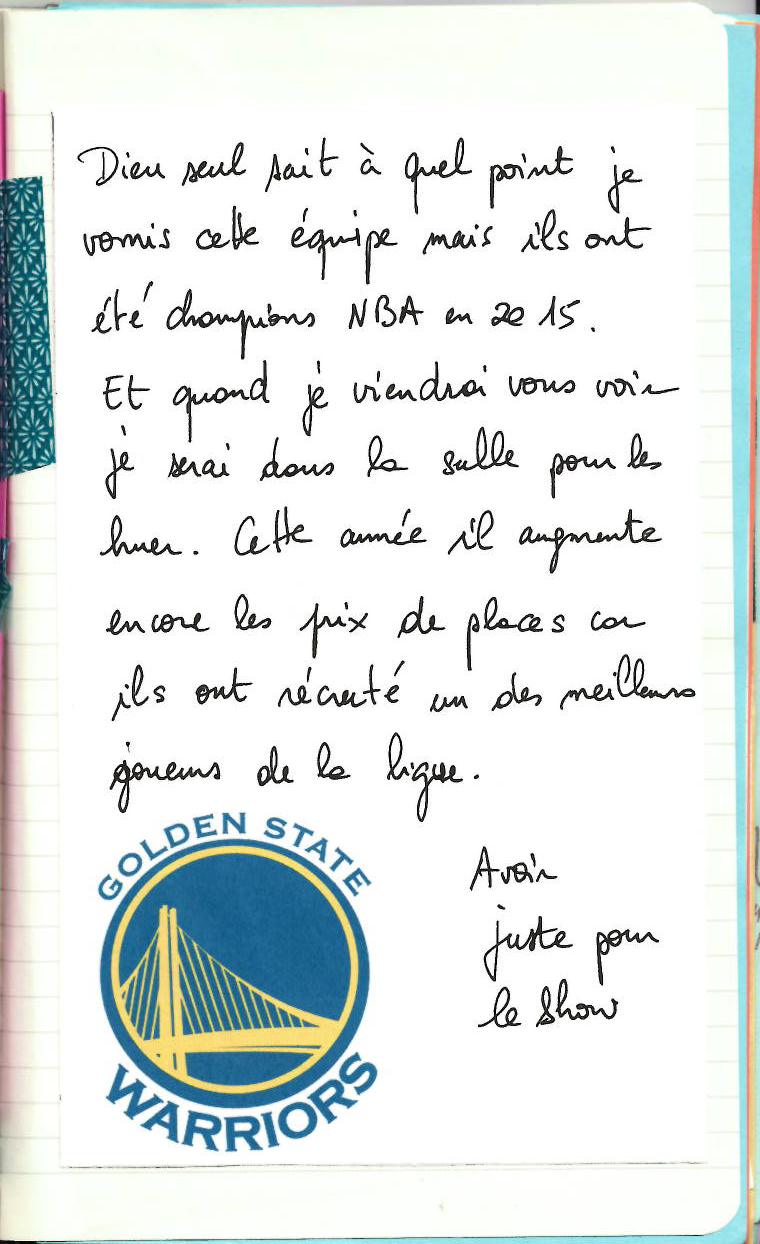 Dieu seul sait à quel point je
vomis cette équipe mais ils ont
été champions NBA en 2015.
Et quand je viendrai vous voir
je serai dans la salle pour les
huer. Cette année il augmente
encore les prix de places car
ils ont récruté un des meilleurs
joueurs de la ligue.
GOLDEN STATE
WARRIORS
A voir
juste pour
le Show